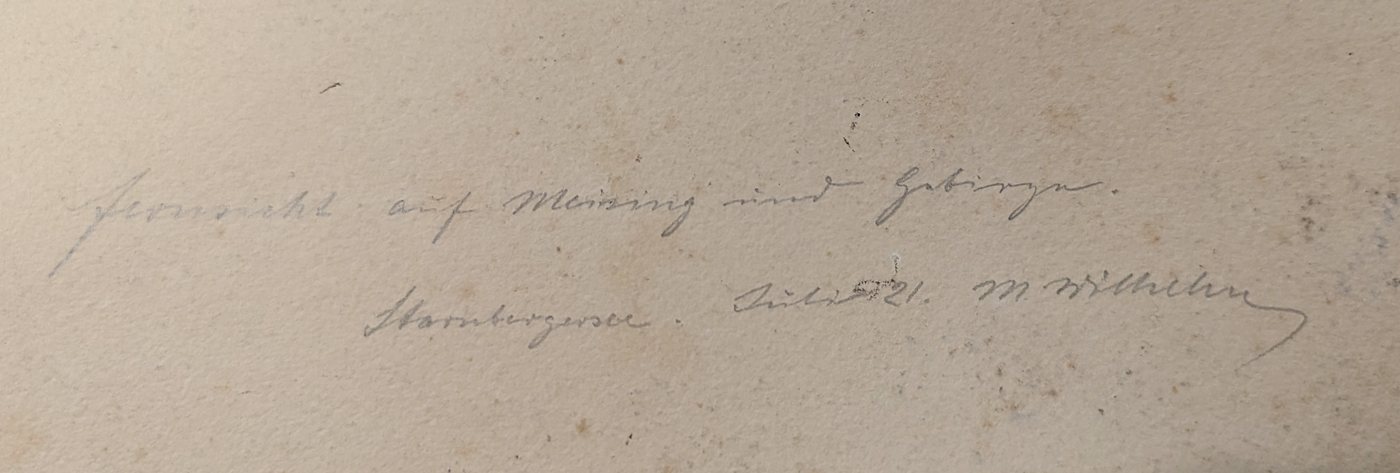 Fernsicht auf Meising und Gebirge.
Starnbergersee. Juli 21. M Wilhelm